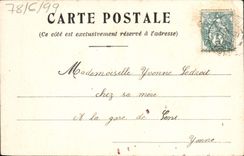 78/6/99
CARTE POSTALE
(Ce côté est exclusivement réservé à l'adresse)
Mademoiselle Yvonne Ledroit
chez sa mère
à la gare de Sens
Yonne